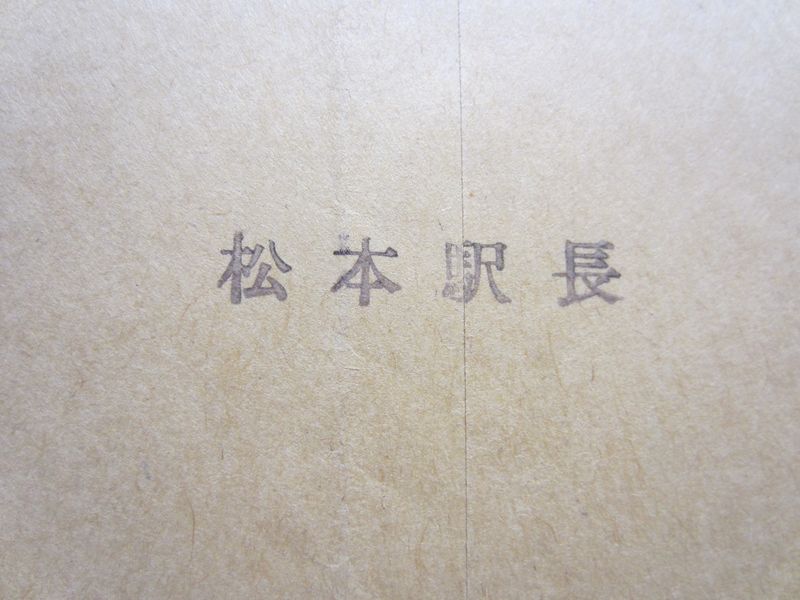 松本駅長